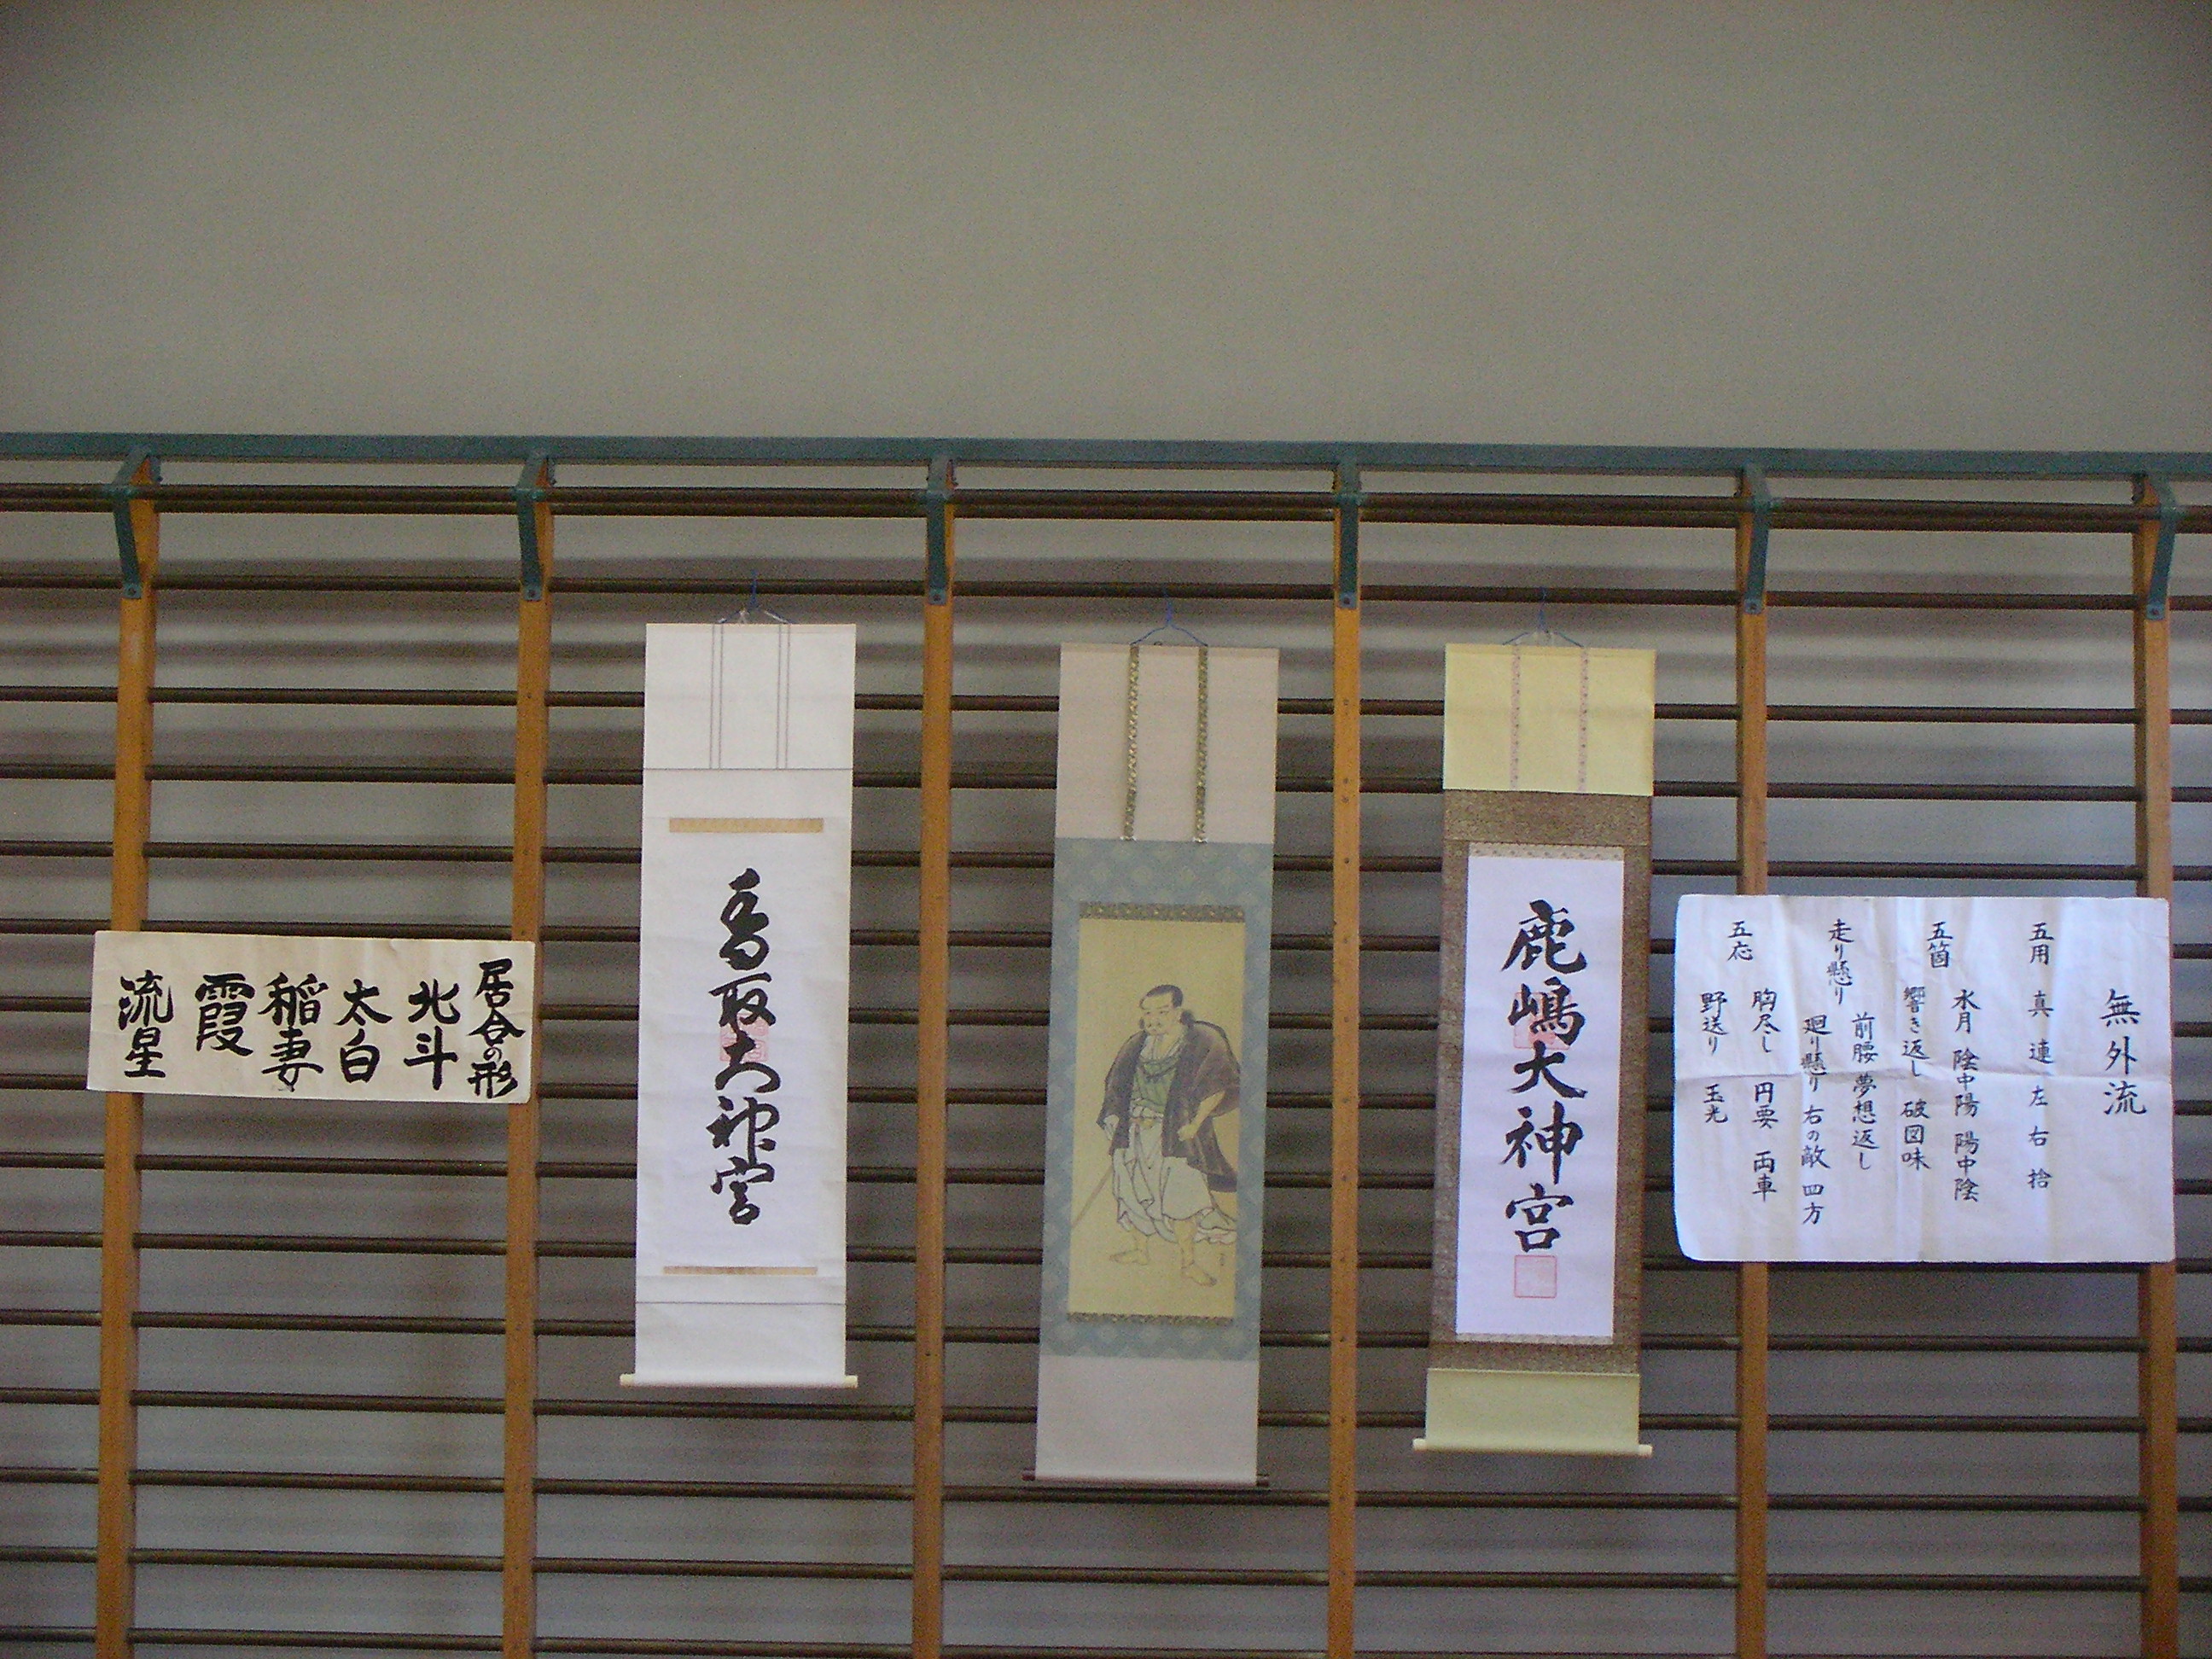 無外流
五用
真 連 左 右 捨
五箇
水月 陰中陽 陽中陰
響き返し 破図味
走り懸り
前腰 夢想返し
廻り懸り 右の敵 四方
五応
胸尽し 円要 両車
野送り 玉光
鹿嶋大神宮
香取大神宮
居合の形
北斗
太白
稲妻
霞
流星